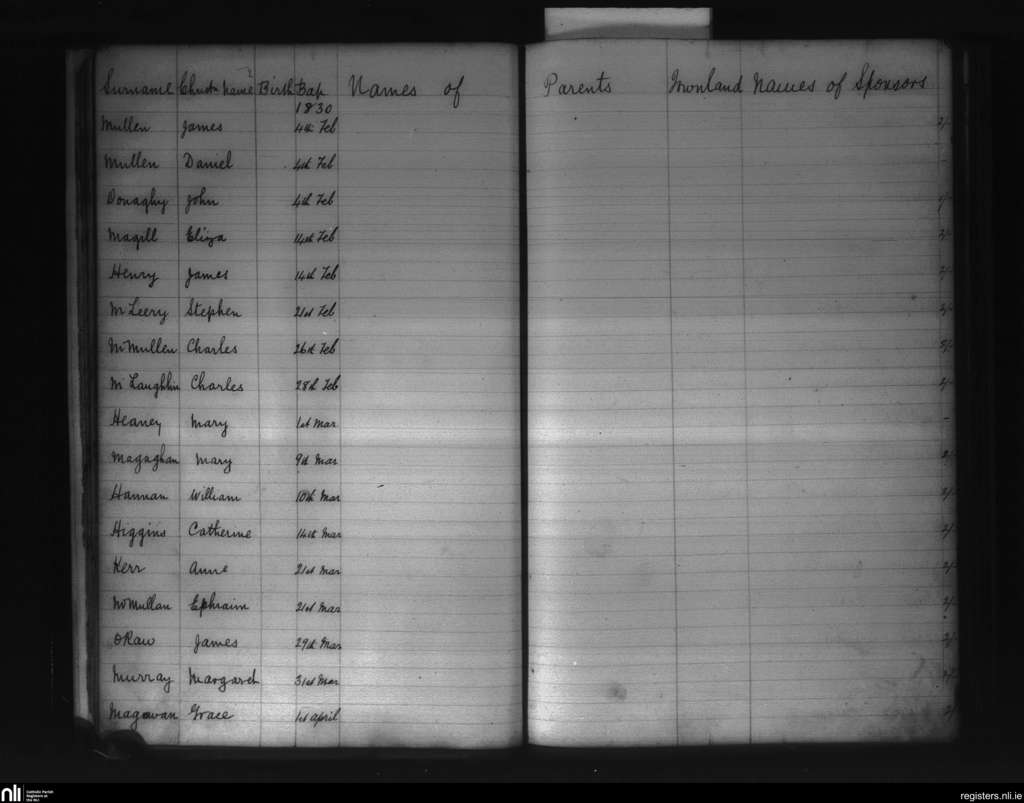 Surname Christn Name Birth Bap Names of Parents Townland Names of Sponsors
1830
Mullen James 4th Feb 2/-
Mullen Daniel 4th Feb -
Donaghy John 4th Feb
Magill Eliza 14th Feb
Henry James 14th Feb
McLeery Stephen 21st Feb
McMullen Charles 26th Feb
McLaughlin Charles 28th Feb
Heaney Mary 1st Mar -
Magaghan Mary 9th Mar 2/-
Hannan William 10th Mar 2/-
Higgins Catherine 14th Mar 2/-
Kerr Anne 21st Mar 2/-
McMullan Ephraim 21st Mar 2/-
O'Raw James 29th Mar 2/-
Murray Margaret 31st Mar
Magowan Grace 1st April 2/-
nli Catholic Parish
Registers at
the NLI
registers.nli.ie